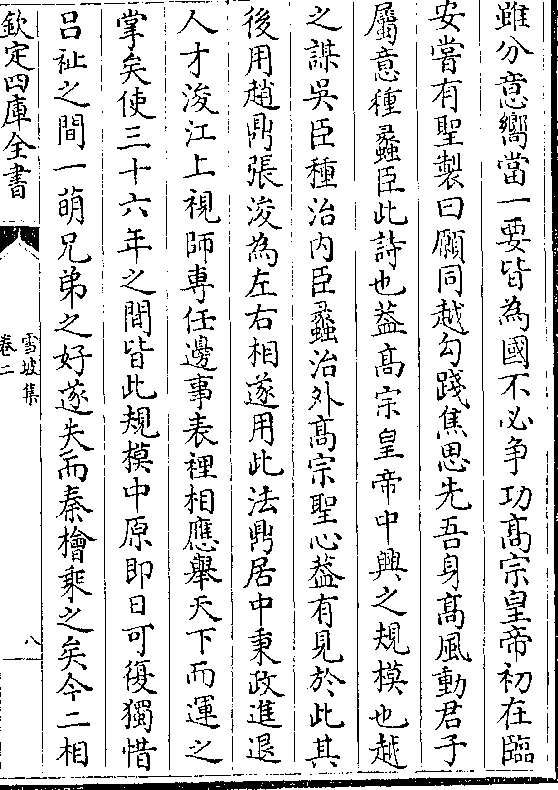 雖分意嚮當一要皆為國不必争功髙宗皇帝初在臨
安嘗有聖製曰願同越勾踐焦思先吾身髙風動君子
屬意種蠡臣此詩也葢髙宗皇帝中興之規模也越
之謀吳臣種治内臣蠡治外髙宗聖心葢有見於此其
後用趙鼎張浚為左右相遂用此法鼎居中秉政進退
人才浚江上視師専任邊事表裡相應舉天下而運之
掌矣使三十六年之間皆此規模中原即日可復獨惜
吕祉之間一萌兄弟之好遂失而秦檜乘之矣今二相
欽定四庫全書
雪坡集
卷二
八